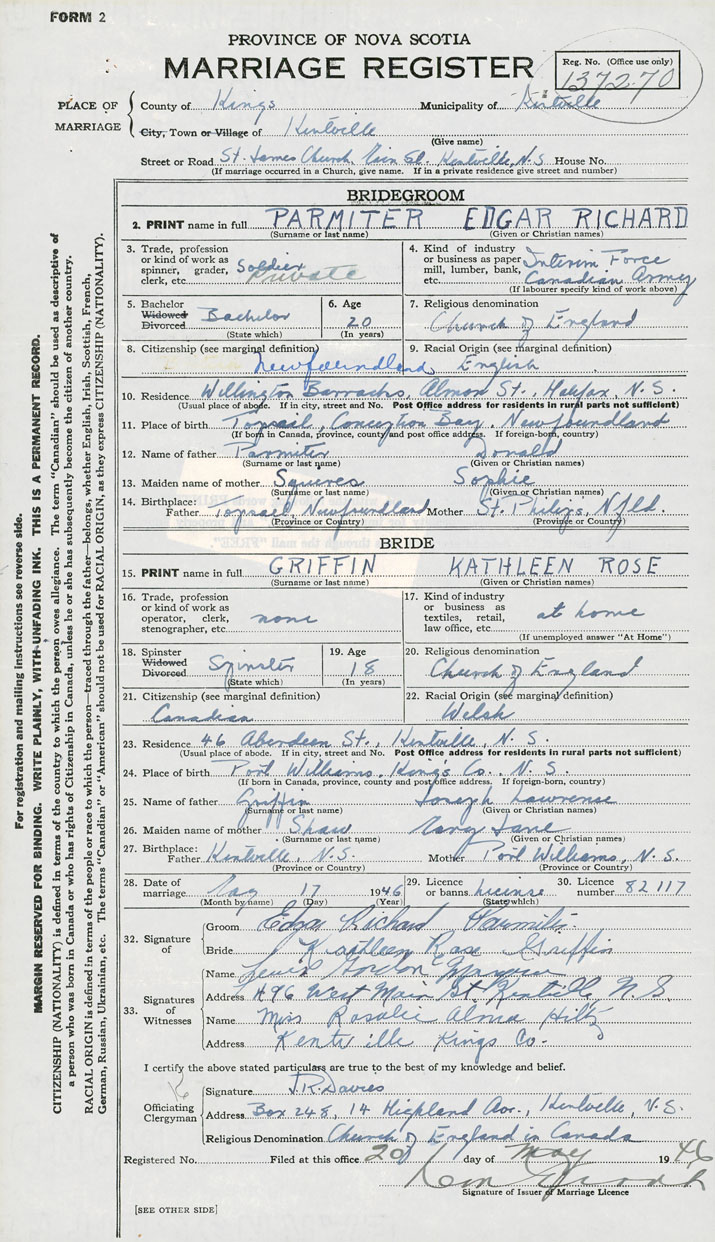 FORM 2
PROVINCE OF NOVA SCOTIA
MARRIAGE REGISTER
Reg. No. (Office use only)
137270
PLACE OF MARRIAGE
County of Kings Municipality of Kentville
City, Town or Village of Kentville
(Give name)
Street or Road St. James Church, Main St. Kentville, N.S. House No.
(If marriage occurred in a Church, give name. If in a private residence give street and number)
BRIDEGROOM
2. PRINT name in full PARMITER EDGAR RICHARD
(Surname or last name) (Given or Christian names)
3. Trade, profession or kind of work as spinner, grader, clerk, etc. Soldier Private
4. Kind of industry or business as paper mill, lumber, bank, etc. Interim Force Canadian Army
(If labourer specify kind of work above)
5. Bachelor Widowed Divorced Bachelor
(State which)
6. Age 20
(In years)
7. Religious denomination
Church of England
8. Citizenship (see marginal definition)
Newfoundland
9. Racial Origin (see marginal definition)
English
10. Residence Wellington Barracks, Almon St. Halifax, N.S.
(Usual place of abode. If in city, street and No. Post Office address for residents in rural parts not sufficient)
11. Place of birth Topsail, Conception Bay, Newfoundland
(If born in Canada, province, county and post office address. If foreign-born, country)
12. Name of father Parmiter Donald
(Surname or last name) (Given or Christian names)
13. Maiden name of mother Squires Sophie
(Surname or last name) (Given or Christian names)
14. Birthplace:
Father Topsail, Newfoundland Mother St. Philips, Nfld.
(Province or Country) (Province or Country)
BRIDE
15. PRINT name in full GRIFFIN KATHLEEN ROSE
(Surname or last name) (Given or Christian names)
16. Trade, profession or kind of work as operator, clerk, stenographer, etc. none
17. Kind of industry or business as textiles, retail, law office, etc. at home
(If unemployed answer "At Home")
18. Spinster Widowed Divorced Spinster
(State which)
19. Age 18
(In years)
20. Religious denomination
Church of England
21. Citizenship (see marginal definition)
Canadian
22. Racial Origin (see marginal definition)
Welsh
23. Residence 46 Aberdeen St., Kentville, N.S.
(Usual place of abode. If in city, street and No. Post Office address for residents in rural parts not sufficient)
24. Place of birth Port Williams, King's Co., N.S.
(If born in Canada, province, county and post office address. If foreign-born, country)
25. Name of father Griffin Joseph Lawrence
(Surname or last name) (Given or Christian names)
26. Maiden name of mother Shaw Mary Jane
(Surname or last name) (Given or Christian names)
27. Birthplace:
Father Kentville, N.S. Mother Port Williams, N.S.
(Province or Country) (Province or Country)
28. Date of marriage May 17 1946
(Month by name) (Day) (Year)
29. Licence or banns License
(State which)
30. Licence number 82117
32. Signature of
Groom Edgar Richard Parmiter
Bride Kathleen Rose Griffin
33. Signatures of Witnesses
Name Lewis Gordon
Address #96 West Main St. Kentville, N.S.
Name Miss Rosalie Alma Hiltz
Address Kentville Kings Co.
I certify the above stated particulars are true to the best of my knowledge and belief.
Officiating Clergyman
Signature J.R. Davies
Address Box 248, 14 Highland Ave., Kentville, N.S.
Religious Denomination Church of England in Canada
Registered No. Filed at this office 20 day of May 1946
Signature of Issuer of Marriage Licence
[SEE OTHER SIDE]
For registration and mailing instructions see reverse side.
MARGIN RESERVED FOR BINDING. WRITE PLAINLY, WITH UNFADING INK. THIS IS A PERMANENT RECORD.
CITIZENSHIP (NATIONALITY) is defined in terms of the country to which the person owes allegiance. The term "Canadian" should be used as descriptive of
a person who was born in Canada or who has rights of Citizenship in Canada, unless he or she has subsequently become the citizen of another country.
RACIAL ORIGIN is defined in terms of the people or race to which the person—traced through the father—belongs, whether English, Irish, Scottish, French,
German, Russian, Ukrainian, etc. The terms "Canadian" or "American" should not be used for RACIAL ORIGIN, as they express CITIZENSHIP (NATIONALITY).